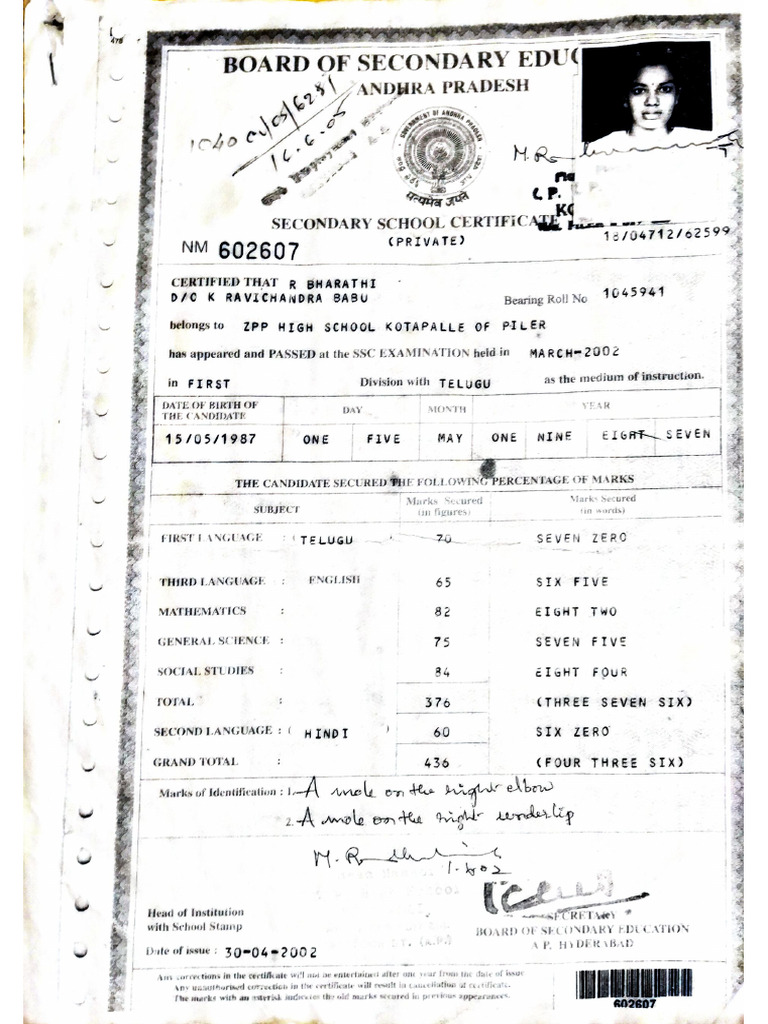 BOARD OF SECONDARY EDUC
ANDHRA PRADESH
GOVERNMENT OF ANDHRA PRADESH
सत्यमेव जयते
SECONDARY SCHOOL CERTIFICATE
(PRIVATE)
18/04712/62599
NM 602607
CERTIFIED THAT R BHARATHI
D/O K RAVICHANDRA BABU
Bearing Roll No 1045941
belongs to ZPP HIGH SCHOOL KOTAPALLE OF PILER
has appeared and PASSED at the SSC EXAMINATION held in MARCH-2002
in FIRST Division with TELUGU as the medium of instruction.
DATE OF BIRTH OF THE CANDIDATE DAY MONTH YEAR
15/05/1987 ONE FIVE MAY ONE NINE EIGHT SEVEN
THE CANDIDATE SECURED THE FOLLOWING PERCENTAGE OF MARKS
SUBJECT Marks Secured (in figures) Marks Secured (in words)
FIRST LANGUAGE : ( TELUGU ) 70 SEVEN ZERO
THIRD LANGUAGE : ENGLISH 65 SIX FIVE
MATHEMATICS : 82 EIGHT TWO
GENERAL SCIENCE : 75 SEVEN FIVE
SOCIAL STUDIES : 84 EIGHT FOUR
TOTAL : 376 (THREE SEVEN SIX)
SECOND LANGUAGE : ( HINDI ) 60 SIX ZERO
GRAND TOTAL : 436 (FOUR THREE SIX)
Marks of Identification : 1. A mole on the right elbow
2. A mole on the right underlip
Head of Institution
with School Stamp
SECRETARY
BOARD OF SECONDARY EDUCATION
A.P. HYDERABAD
Date of issue : 30-04-2002
Any corrections in the certificate will not be entertained after one year from the date of issue
Any unauthorised correction in the certificate will result in cancellation of certificate.
The marks with an asterisk indicates the old marks secured in previous appearances.
602607